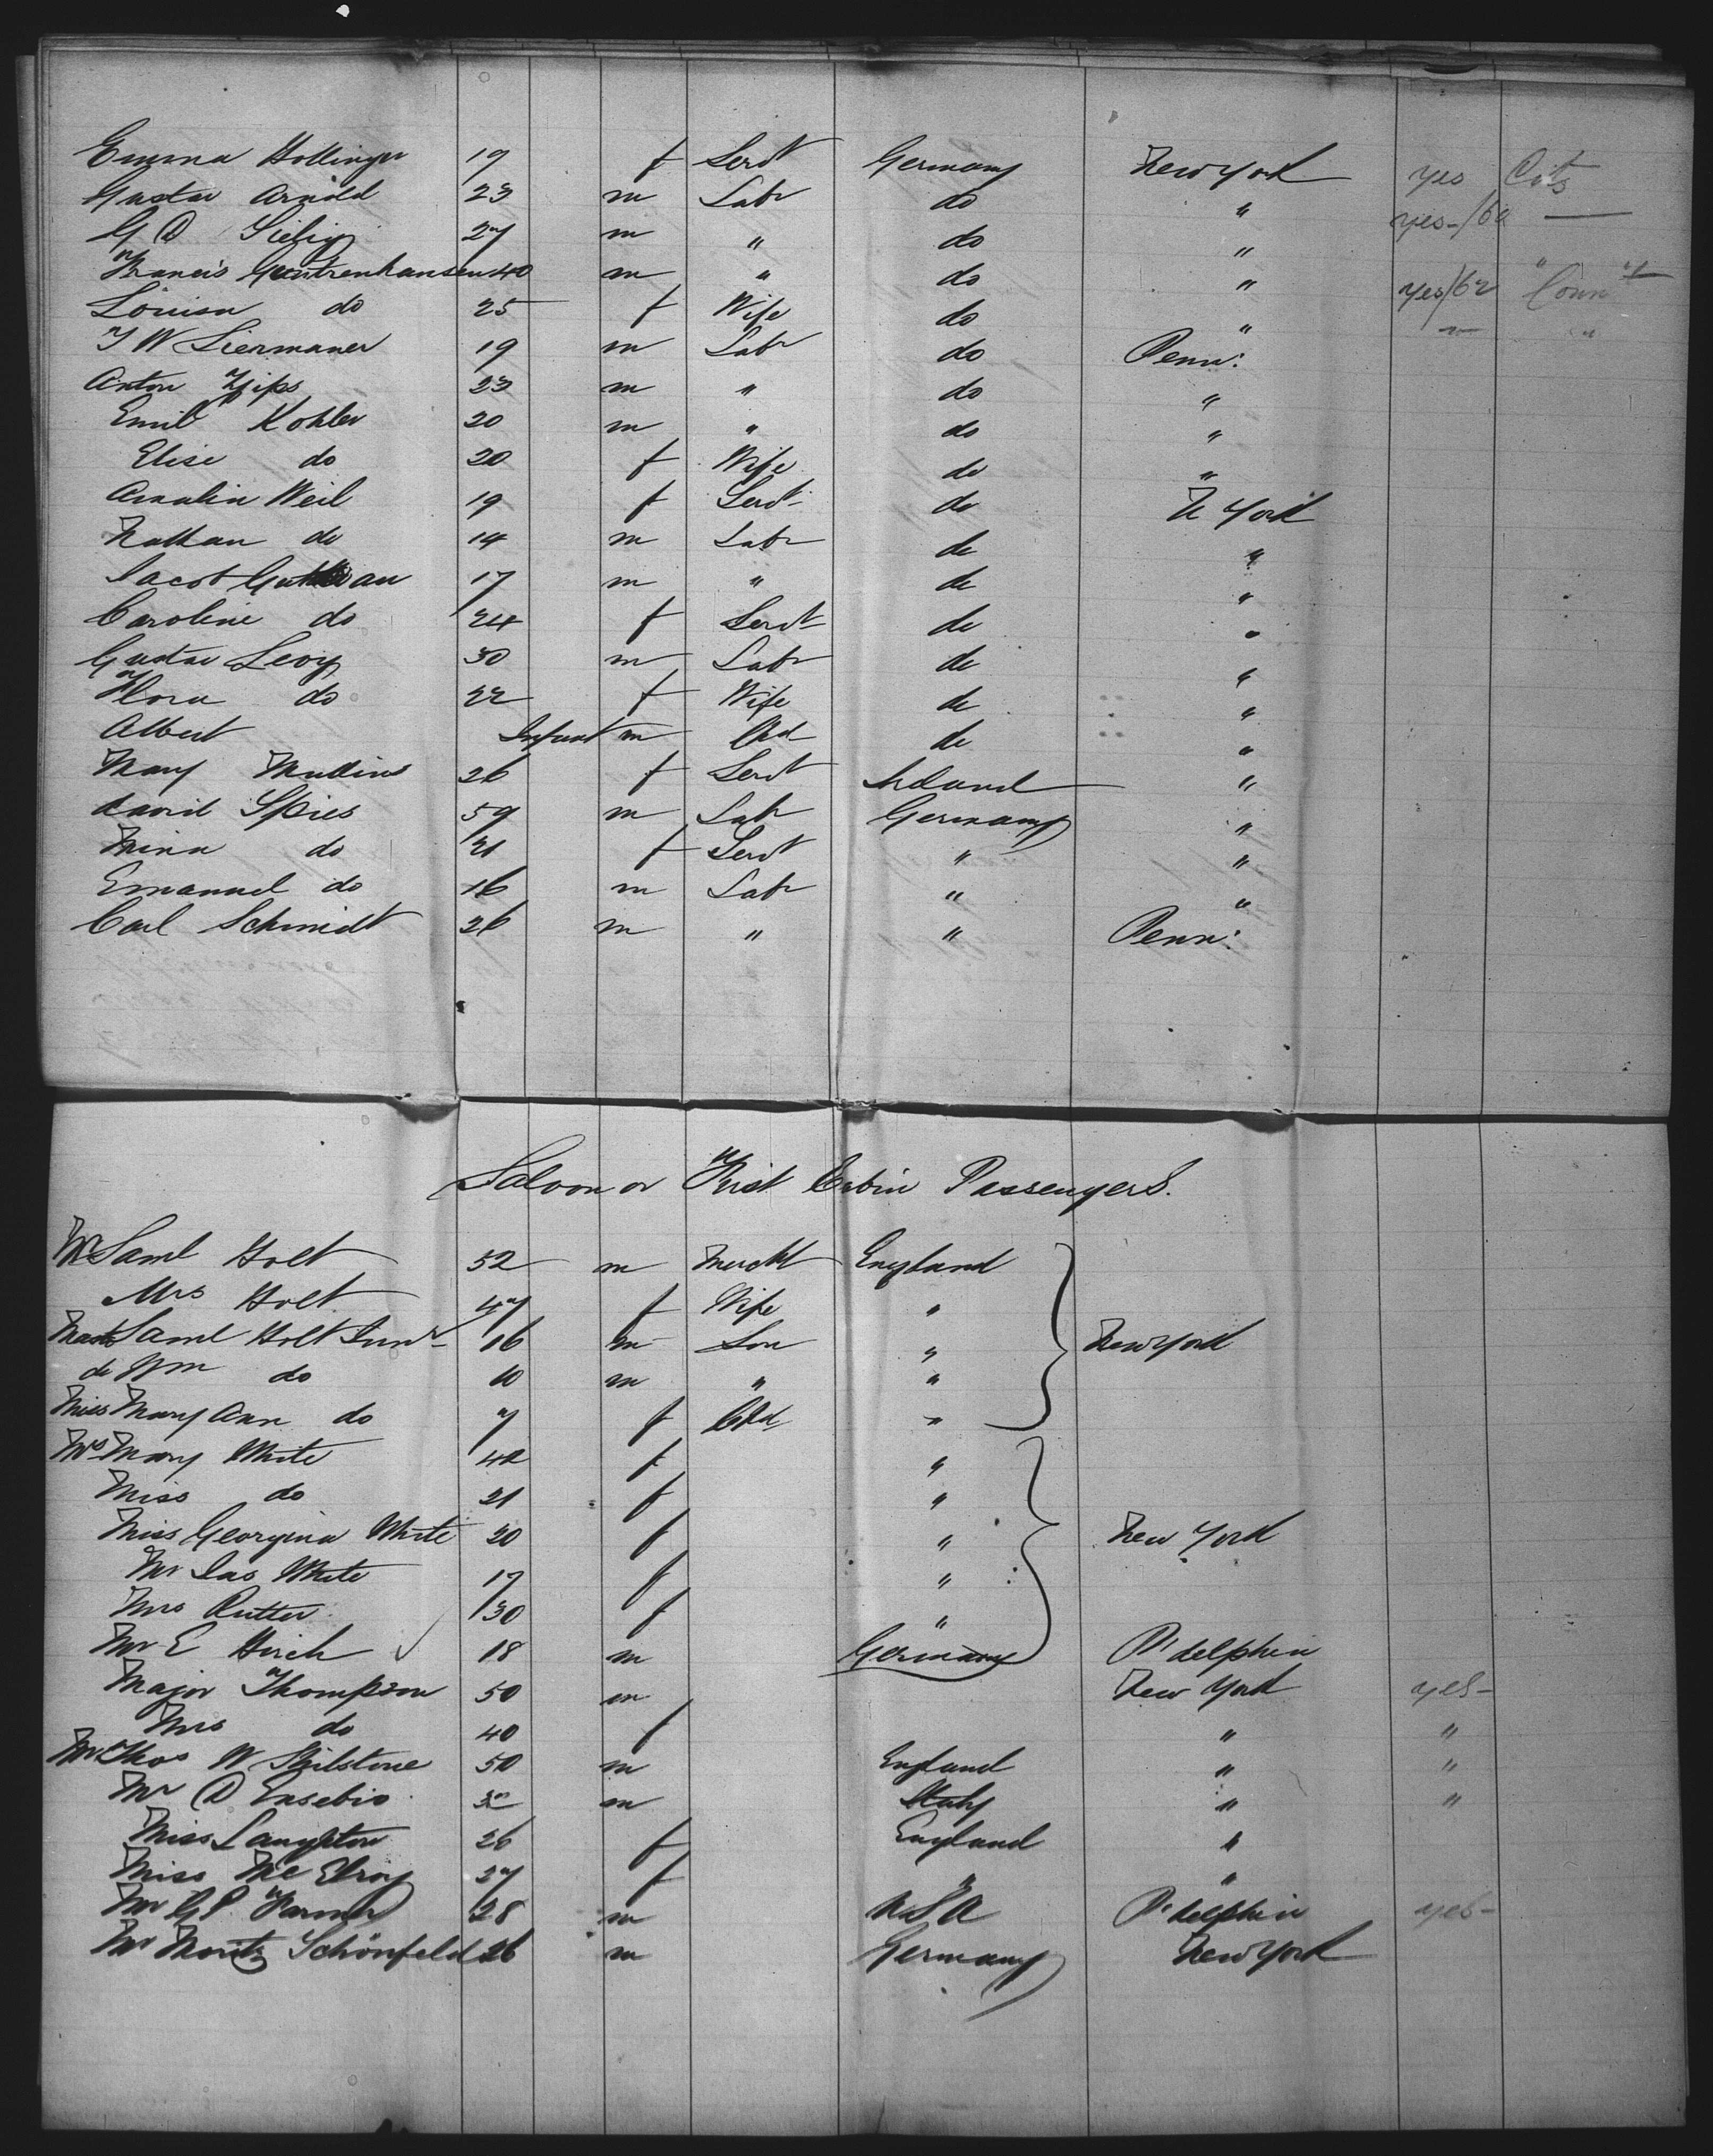 Emma Hollinger 19 f Servt Germany New York yes City
Gustav Arnold 23 m Labr do " yes-/60 —
G D 27 m " do "
Francis Guntrenhausen 40 m " do " yes/62 Conn
Louisa do 25 f Wife do " " "
J W Siermaner 19 m Labr do Penn:
Anton Zips 23 m " do "
Emil Kohler 20 m " do "
Elise do 20 f Wife do "
Amalia Weil 19 f Servt do N York
Nathan do 14 m Labr do "
Jacob 17 m " do "
Caroline do 24 f Servt do "
Gustav Levy 30 m Labr do "
Flora do 22 f Wife do "
Albert Infant m Chd do "
Mary Mullins 26 f Servt Ireland "
David Spies 59 m Labr Germany "
Mina do 21 f Servt " "
Emanuel do 16 m Labr " "
Carl Schmidt 26 m " " Penn:
Saloon or First Cabin Passengers.
Mr Saml Holt 52 m Mercht England
Mrs Holt 47 f Wife "
Mastr Saml Holt Junr 16 m Son " New York
do Wm do 10 m " "
Miss Mary Ann do 7 f Chd "
Mrs Mary White 42 f "
Miss do 21 f "
Miss Georgina White 20 f " New York
Mr Jas White 17 f "
Mrs Rutter 30 f "
Mr E Hirch 18 m Germany P'delphia
Major Thompson 50 m New York yes-
Mrs do 40 f " "
Mr Thos W Shilstone 50 m England " "
Mr D Eusebio 32 m Italy " "
Miss Langhton 26 f England "
Miss Mc Elroy 27 f " "
Mr G P Farmer 28 m U S A P'delphia yes-
Mr Moritz Schönfeld 26 m Germany New York